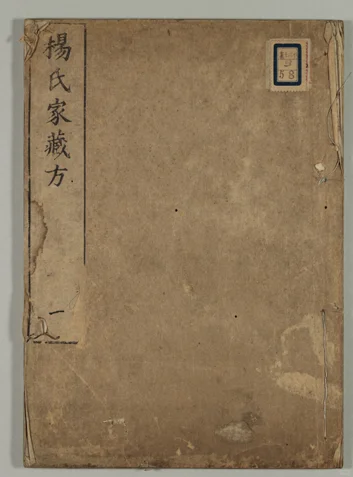 楊氏家藏方
一
58